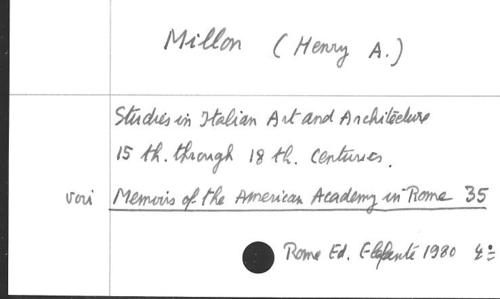 Millon (Henry A.)
Studies in Italian Art and Architecture
15 th. through 18 th. Centuries.
voir Memoirs of the American Academy in Rome 35
Rome Ed. Elefante 1980 4º